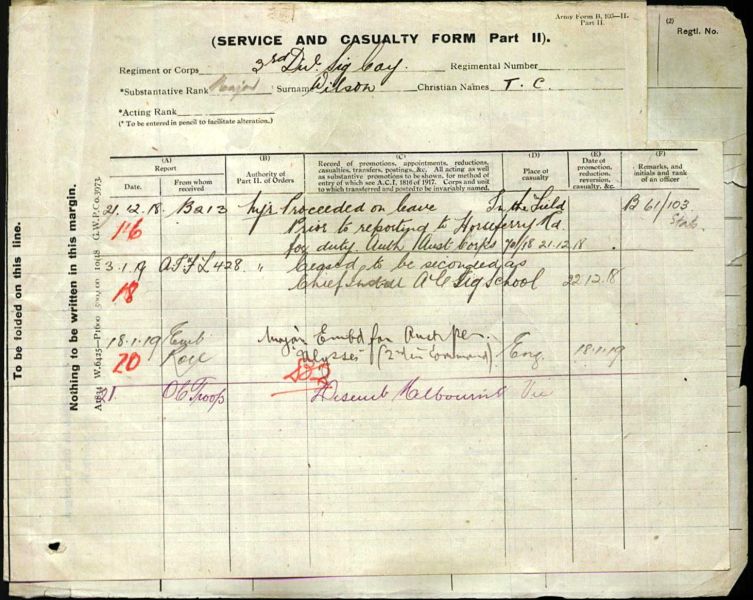 Army Form B. 103—II.
Part II.
(2)
Regtl. No.
(SERVICE AND CASUALTY FORM Part II).
Regiment or Corps 3rd Div Sig Coy Regimental Number
*Substantative Rank Major Surname Wilson Christian Names T. C.
*Acting Rank
(* To be entered in pencil to facilitate alteration.)
To be folded on this line.
Nothing to be written in this margin.
(A) Report
Date. From whom received
(B) Authority of Part II. of Orders
(C) Record of promotions, appointments, reductions, casualties, transfers, postings, &c. All acting as well as substantive promotions to be shown, for method of entry of which see A.C.I. 1816 of 1917. Corps and unit to which transferred and posted to be invariably named.
(D) Place of casualty
(E) Date of promotion, reduction, reversion, casualty, &c.
(F) Remarks, and initials and rank of an officer
21.12.18. B213 Mjr Proceeded on leave In the Field B 61/103
116 Prior to reporting to Horseferry Rd
for duty. Auth Aust Corps 70/18 21.12.18
3.1.19 428 " Ceased to be seconded as
18 Chief Sig School 22.12.18
18.1.19 Emb Major Embd for Aust per
20 Roll Ulysses (2nd in Command) Eng. 18.1.19
21. OC Troop Disemb Melbourne Vic